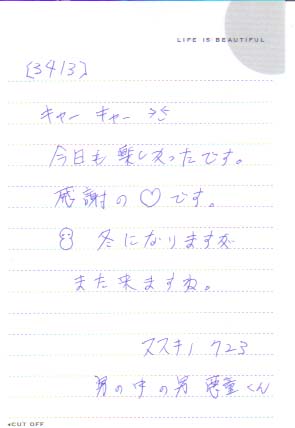 LIFE IS BEAUTIFUL
〔3413〕
キャー キャー
今日も楽しかったです。
感謝の♡です。
冬になりますが
また来ますね。
ススキノ 723
男の中の男 悪童くん
◂CUT OFF